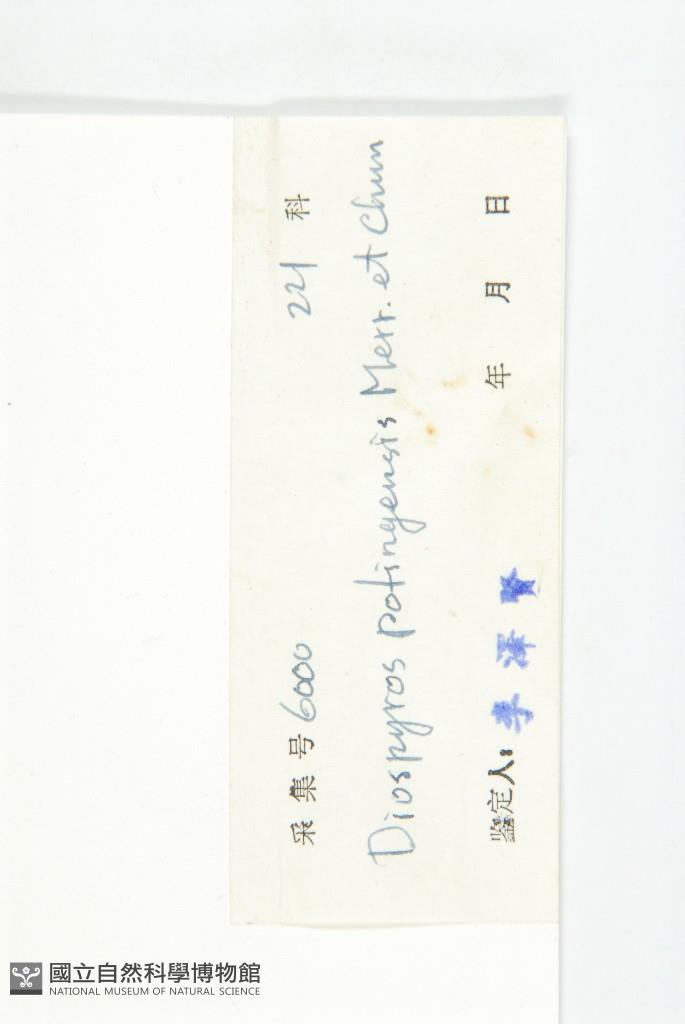 采集号 6000 221 科
Diospyros potingensis Merr. et Chun
鉴定人: 李泽贤 年 月 日
國立自然科學博物館
NATIONAL MUSEUM OF NATURAL SCIENCE